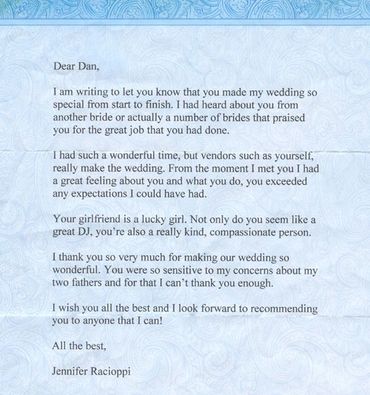 Dear Dan,
I am writing to let you know that you made my wedding so
special from start to finish. I had heard about you from
another bride or actually a number of brides that praised
you for the great job that you had done.
I had such a wonderful time, but vendors such as yourself,
really make the wedding. From the moment I met you I had
a great feeling about you and what you do, you exceeded
any expectations I could have had.
Your girlfriend is a lucky girl. Not only do you seem like a
great DJ, you're also a really kind, compassionate person.
I thank you so very much for making our wedding so
wonderful. You were so sensitive to my concerns about my
two fathers and for that I can't thank you enough.
I wish you all the best and I look forward to recommending
you to anyone that I can!
All the best,
Jennifer Racioppi